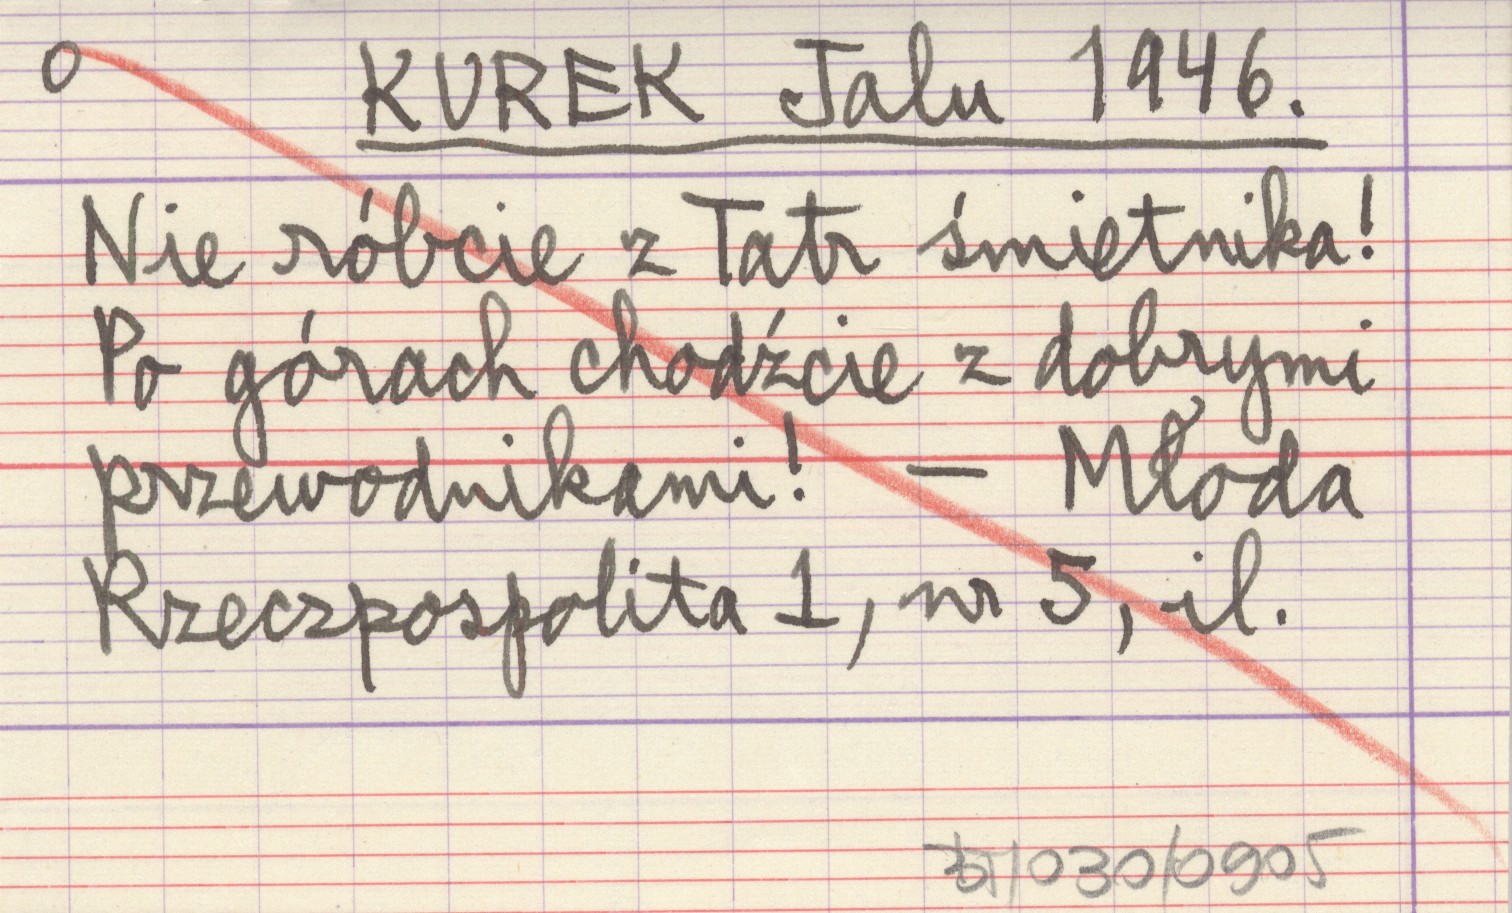 O KUREK Jalu 1946.
Nie róbcie z Tatr śmietnika!
Po górach chodźcie z dobrymi
przewodnikami! — Młoda
Rzeczpospolita 1, nr 5, il.
/030/0905